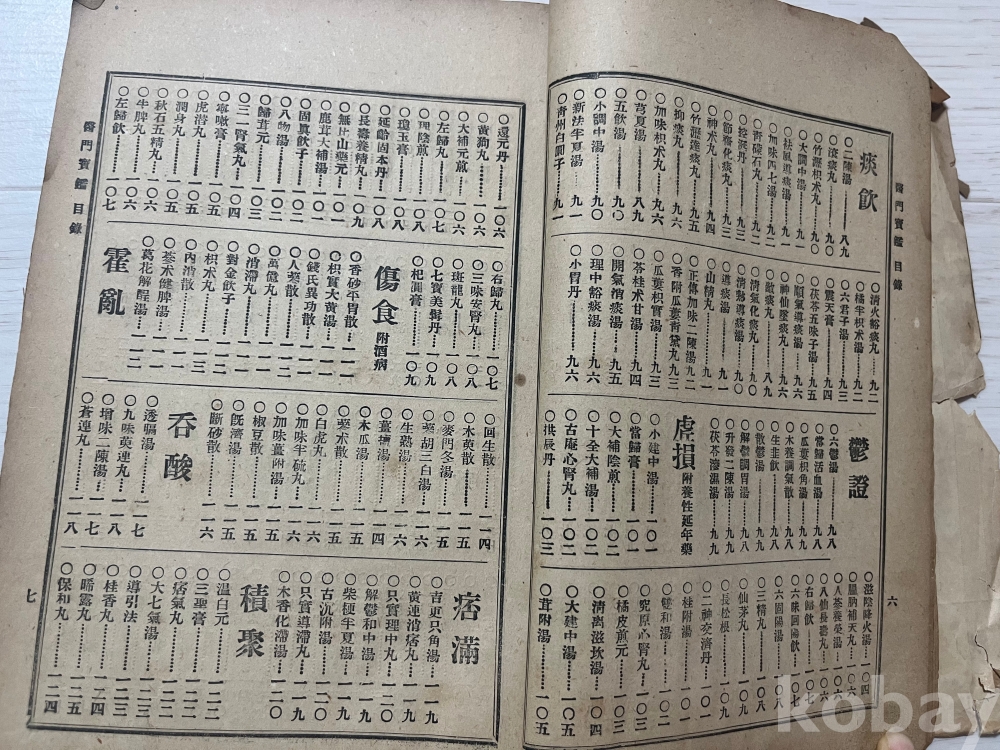 醫門寶鑑 目錄
六
痰飮
〇二陳湯 八九
〇滾痰丸 九〇
〇竹瀝枳朮丸 九〇
〇大調中湯 九一
〇祛風導痰湯 九一
〇加味四七湯 九二
〇靑礞石丸 九二
〇控涎丹 九三
〇節齋化痰丸 九三
〇神朮丸 九四
〇竹瀝達痰丸 九五
〇抑痰丸 九六
〇加味枳朮丸 九六
〇芎夏湯 八九
〇五飮湯 九〇
〇小調中湯 九〇
〇新法半夏湯 九一
〇靑州白圓子 九一
〇淸火豁痰丸 九二
〇橘半枳朮湯 九二
〇六君子湯 九三
〇震天膏 九四
〇茯苓五味子湯 九五
〇順氣導痰湯 九六
〇神仙墜痰丸 九六
〇敵痰丸 八九
〇淸氣化痰丸 九〇
〇淸熱導痰湯 九〇
〇導痰湯 九一
〇山精丸 九一
〇正傳加味二陳湯 九二
〇香附瓜蔞靑黛丸 九三
〇瓜蔞枳實湯 九三
〇苓桂朮甘湯 九四
〇開氣消痰湯 九五
〇理中豁痰湯 九六
〇小胃丹 九六
鬱證
〇六鬱湯 九八
〇當歸活血湯 九八
〇瓜蔞枳角湯 九八
〇木香調氣散 九九
〇生韭飮 九八
〇散鬱湯 九九
〇解鬱調胃湯 九九
〇升發二陳湯 九九
〇茯苓滲濕湯 九九
虛損 附養性延年藥
〇小建中湯 一〇一
〇當歸膏 一〇一
〇大補陰煎 一〇一
〇十全大補湯 一〇二
〇古庵心腎丸 一〇二
〇拱辰丹 一〇三
〇滋陰降火湯 一〇四
〇膃肭補天丸
〇人蔘養榮湯
〇八仙長壽丸
〇右歸飮
〇六味回陽飮
〇六固陽湯
〇三精丸
〇仙茅丸
〇長松根
〇二神交濟丹
〇桂附湯
〇雙和湯
〇究原心腎丸
〇橘皮煎元
〇淸离滋坎湯
〇大建中湯 一〇五
〇茸附湯 一〇五
〇還元丹 一〇六
〇黃狗丸 一〇六
〇大補元煎 一〇六
〇左歸丸 一〇七
〇理陰煎 一〇八
〇瓊玉膏 一〇八
〇延齡固本丹
〇長壽養精丸
〇無比山藥元
〇鹿茸大補湯
〇固眞飮子
〇八物湯 一〇二
〇歸茸元 一〇三
〇三一腎氣丸 一〇四
〇寧嗽膏
〇虎潛丸 一〇五
〇潤身丸 一〇五
〇秋石五精丸 一〇六
〇牛脾丸 一〇六
〇左歸飮 一〇七
〇右歸丸 一〇七
〇三味安腎丸 一〇八
〇斑龍丸 一〇八
〇七寶美髥丹 一〇九
〇杞圓膏 一〇九
傷食 附酒病
〇香砂平胃散
〇枳實大黃湯
〇錢氏異功散
〇人蔘散
〇萬億丸
〇消滯丸
〇對金飮子
〇枳朮丸
〇內消散
〇蔘朮健脾湯
〇葛花解酲湯
霍亂
〇回生散 一一四
〇木萸散 一一五
〇麥門冬湯 一一五
〇藥胡三白湯 一一六
〇生熟湯 一一六
〇薑鹽湯
〇木瓜湯
〇藿朮散 一一五
〇白虎丸 一一五
〇加味半硫丸 一一六
〇加味薑附湯 一一五
〇椒豆散
〇旣濟湯 一一五
〇斷砂散 一一六
呑酸
〇透膈湯 一一七
〇九味萸連丸 一一八
〇增味二陳湯 一一七
〇蒼連丸 一一八
痞滿
〇吉更只角湯 一一九
〇黃連消痞丸 一一九
〇只實理中丸
〇解鬱和中湯 一一九
〇柴梗半夏湯 一一九
〇古沉附湯 一二〇
〇只實導滯丸 一一九
〇木香化滯湯
積聚
〇溫白元 一二二
〇三聖膏
〇痞氣丸 一二二
〇大七氣湯
〇導引法
〇桂香丸 一二四
〇唏露丸 一二五
〇保和丸 一二四
醫門寶鑑 目錄
七
kobay